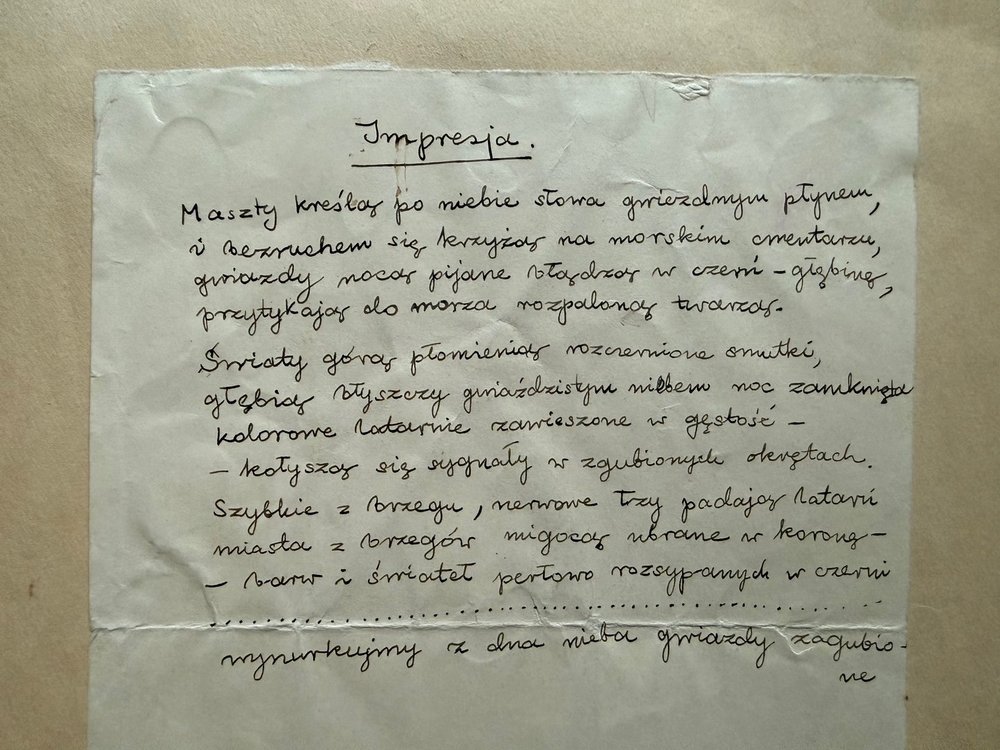 Impresja.
Maszty kreślą po niebie słowa gwiezdnym płynem,
i bezruchem się krzyżą na morskim cmentarzu,
gwiazdy nocą pijane błądzą w czerń - głębinę,
przytykając do morza rozpaloną twarzą.
Światy górą płomienią rozczernione smutki,
głębią błyszczy gwiaździstym niebem noc zamknięta
kolorowe latarnie zawieszone w gęstość -
- kołyszą się sygnały w zgubionych okrętach.
Szybkie z brzegu, nerwowe łzy padają latarń
miasta z brzegów migocą ubrane w koronę -
- barw i świateł perłowo rozsypanych w czerni
..........................................
wynurkujmy z dna nieba gwiazdy zagubio-
ne